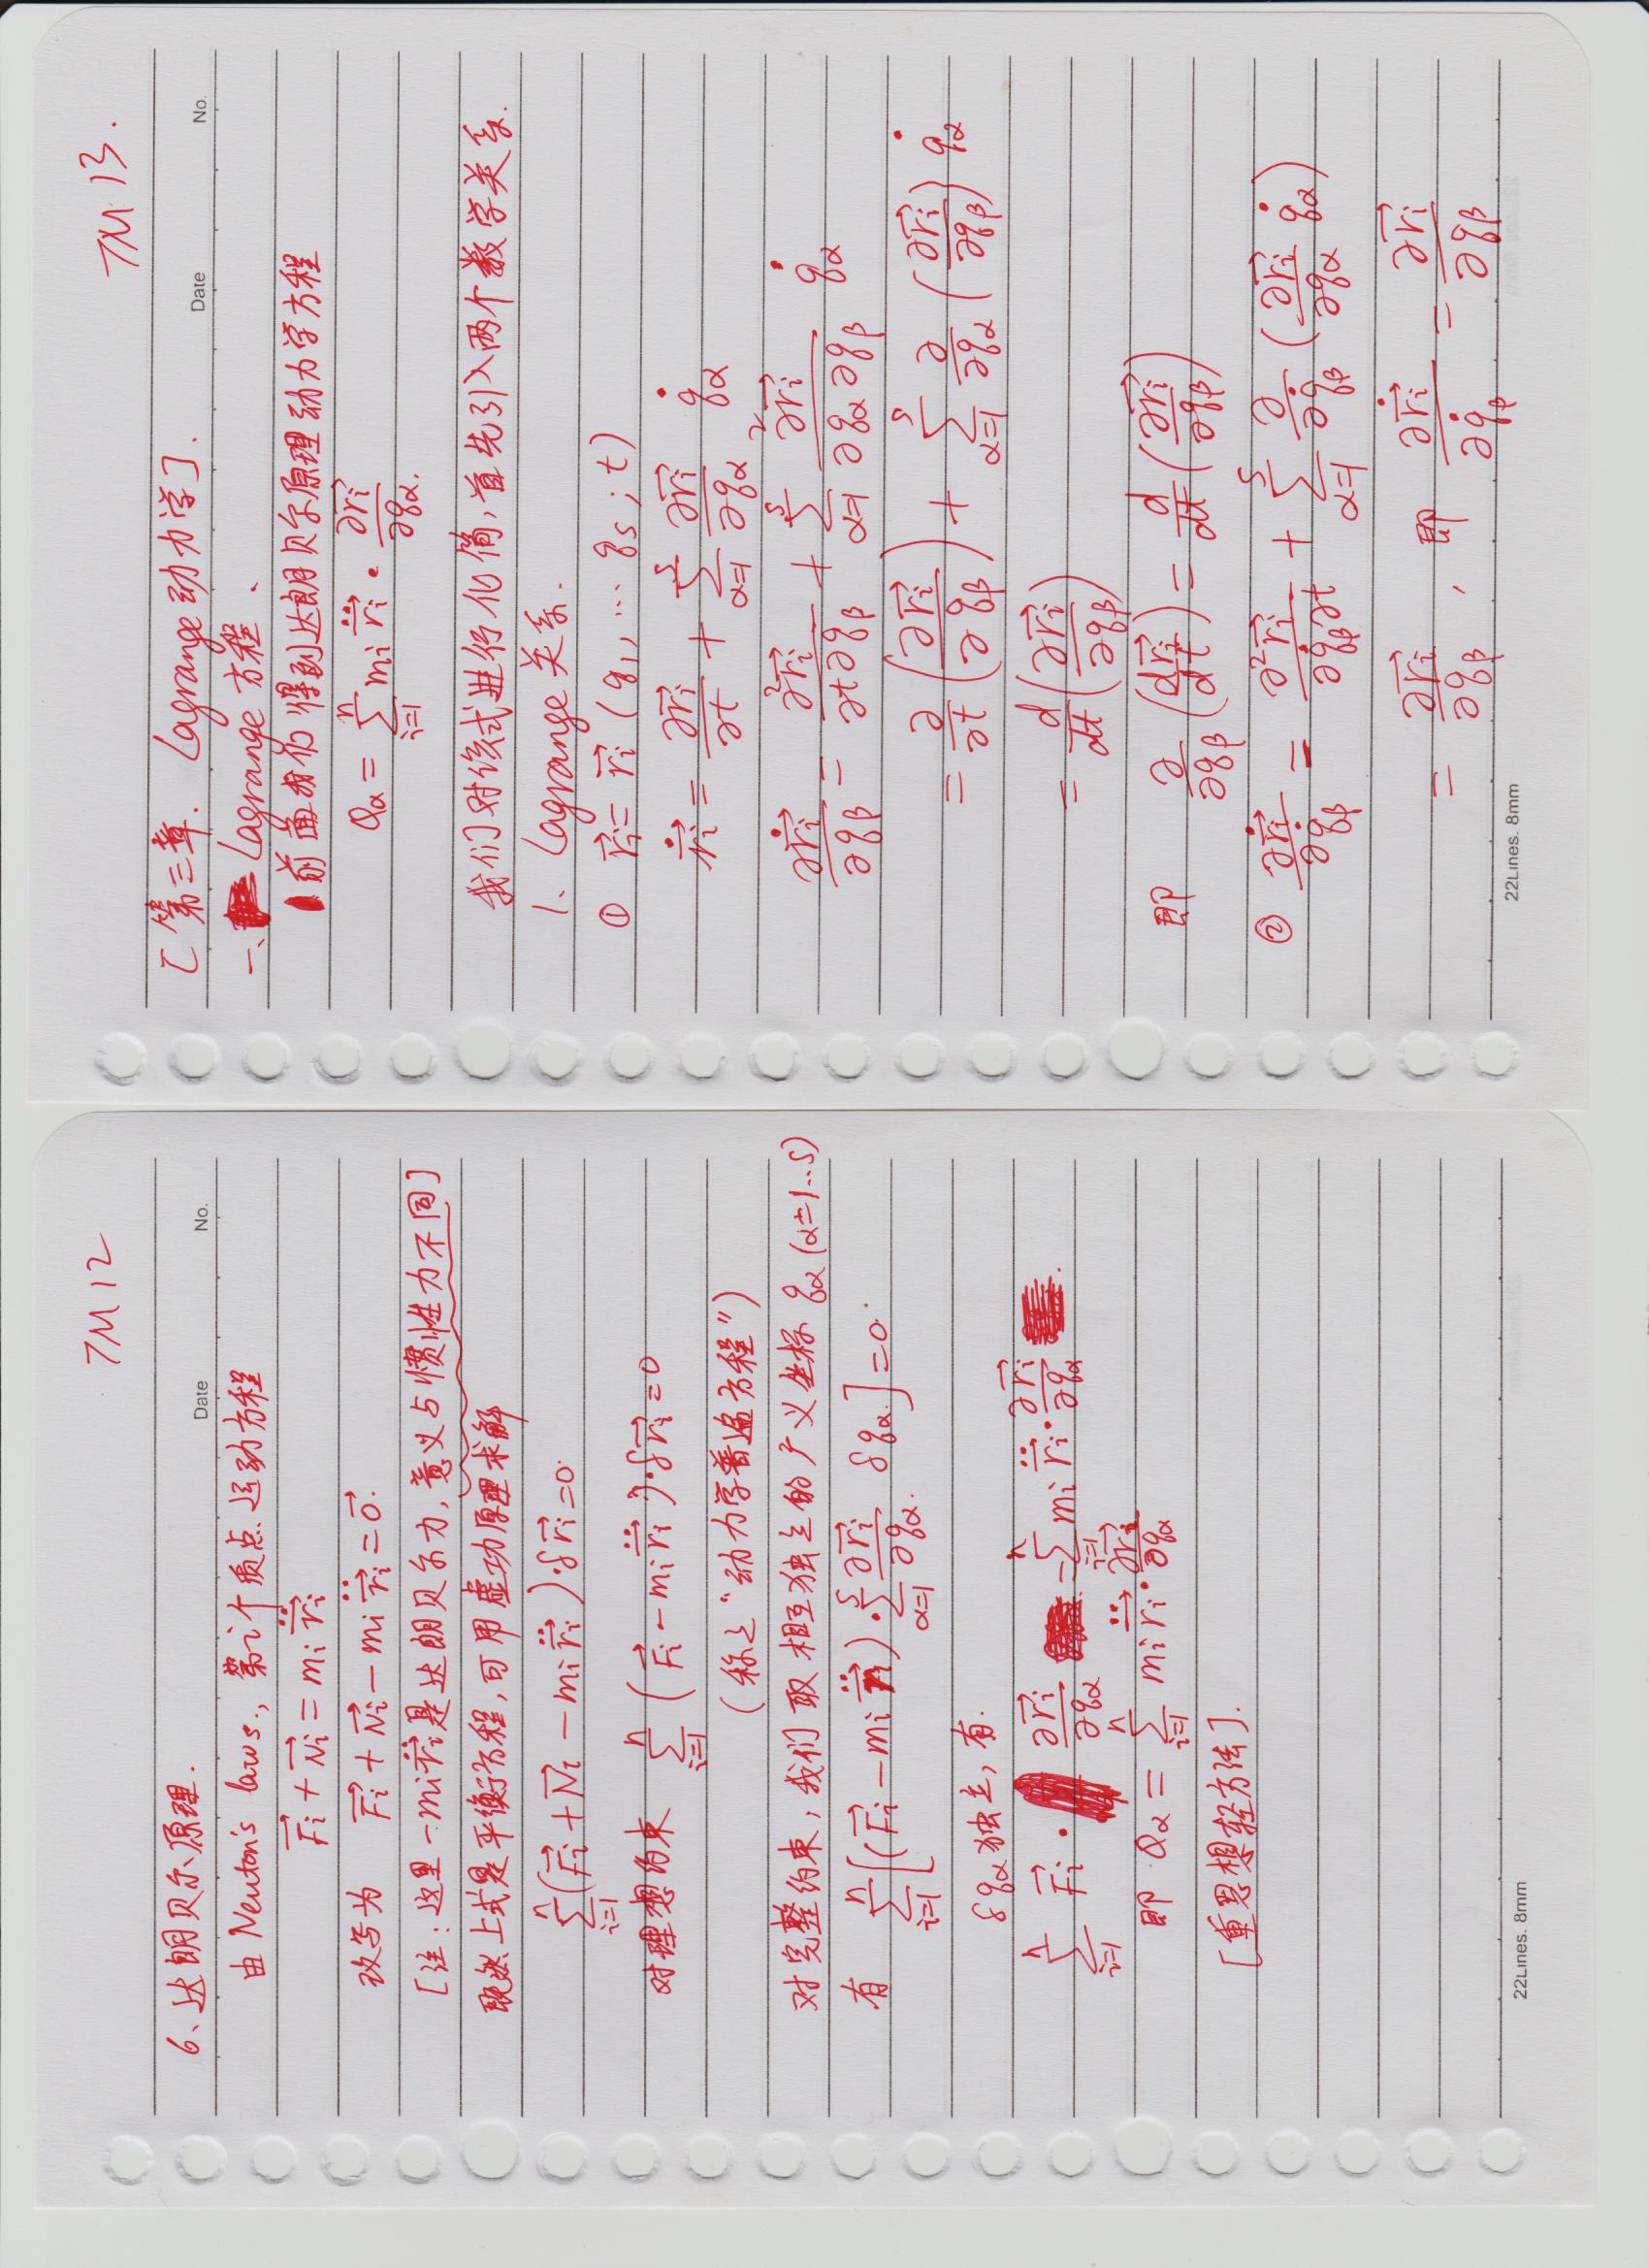 TM 12
6、达朗贝尔原理.
Date No.
由 Newton's laws., 第i个质点运动方程
$\vec{F_i} + \vec{N_i} = m_i \ddot{\vec{r_i}}$
改写为 $\vec{F_i} + \vec{N_i} - m_i \ddot{\vec{r_i}} = \vec{0}.$
[注: 这里 $-m_i \ddot{\vec{r_i}}$ 是达朗贝尔力, 意义与惯性力不同]
既然上式是平衡方程, 可用虚功原理求解
$\sum_{i=1}^{n} (\vec{F_i} + \vec{N_i} - m_i \ddot{\vec{r_i}}) \cdot \delta \vec{r_i} = 0.$
对理想约束 $\sum_{i=1}^{n} (\vec{F_i} - m_i \ddot{\vec{r_i}}) \cdot \delta \vec{r_i} = 0$
(称之“动力学普遍方程”)
对完整约束, 我们取相互独立的广义坐标 $q_\alpha$ ($\alpha = 1 \ldots s$)
有 $\sum_{i=1}^{n} [(\vec{F_i} - m_i \ddot{\vec{r_i}}) \cdot \sum_{\alpha=1}^{s} \frac{\partial \vec{r_i}}{\partial q_\alpha} \delta q_\alpha] = 0.$
$\delta q_\alpha$ 独立, 有.
$\sum_{i=1}^{n} \vec{F_i} \cdot \frac{\partial \vec{r_i}}{\partial q_\alpha} = \sum_{i=1}^{n} m_i \ddot{\vec{r_i}} \cdot \frac{\partial \vec{r_i}}{\partial q_\alpha}.$
即 $Q_\alpha = \sum_{i=1}^{n} m_i \ddot{\vec{r_i}} \cdot \frac{\partial \vec{r_i}}{\partial q_\alpha}$
[重思想轻方法].
22Lines. 8mm
TM 13.
[第三章. Lagrange 动力学].
Date No.
一、Lagrange 方程、
前面我们得到达朗贝尔原理动力学方程
$Q_\alpha = \sum_{i=1}^{n} m_i \ddot{\vec{r_i}} \cdot \frac{\partial \vec{r_i}}{\partial q_\alpha}.$
我们对该式进行化简, 首先引入两个数学关系.
1、Lagrange 关系.
① $\vec{r_i} = \vec{r_i} (q_1, \ldots q_s; t)$
$\dot{\vec{r_i}} = \frac{\partial \vec{r_i}}{\partial t} + \sum_{\alpha=1}^{s} \frac{\partial \vec{r_i}}{\partial q_\alpha} \dot{q_\alpha}$
$\frac{\partial \dot{\vec{r_i}}}{\partial q_\beta} = \frac{\partial^2 \vec{r_i}}{\partial t \partial q_\beta} + \sum_{\alpha=1}^{s} \frac{\partial^2 \vec{r_i}}{\partial q_\alpha \partial q_\beta} \dot{q_\alpha}$
$= \frac{\partial}{\partial t} (\frac{\partial \vec{r_i}}{\partial q_\beta}) + \sum_{\alpha=1}^{s} \frac{\partial}{\partial q_\alpha} (\frac{\partial \vec{r_i}}{\partial q_\beta}) \dot{q_\alpha}$
$= \frac{d}{dt} (\frac{\partial \vec{r_i}}{\partial q_\beta})$
即 $\frac{\partial}{\partial q_\beta} (\frac{d \vec{r_i}}{dt}) = \frac{d}{dt} (\frac{\partial \vec{r_i}}{\partial q_\beta})$
② $\frac{\partial \dot{\vec{r_i}}}{\partial \dot{q_\beta}} = \frac{\partial^2 \vec{r_i}}{\partial \dot{q_\beta} \partial t} + \sum_{\alpha=1}^{s} \frac{\partial}{\partial \dot{q_\beta}} (\frac{\partial \vec{r_i}}{\partial q_\alpha} \dot{q_\alpha})$
$= \frac{\partial \vec{r_i}}{\partial q_\beta}$, 即 $\frac{\partial \dot{\vec{r_i}}}{\partial \dot{q_\beta}} = \frac{\partial \vec{r_i}}{\partial q_\beta}$
22Lines. 8mm